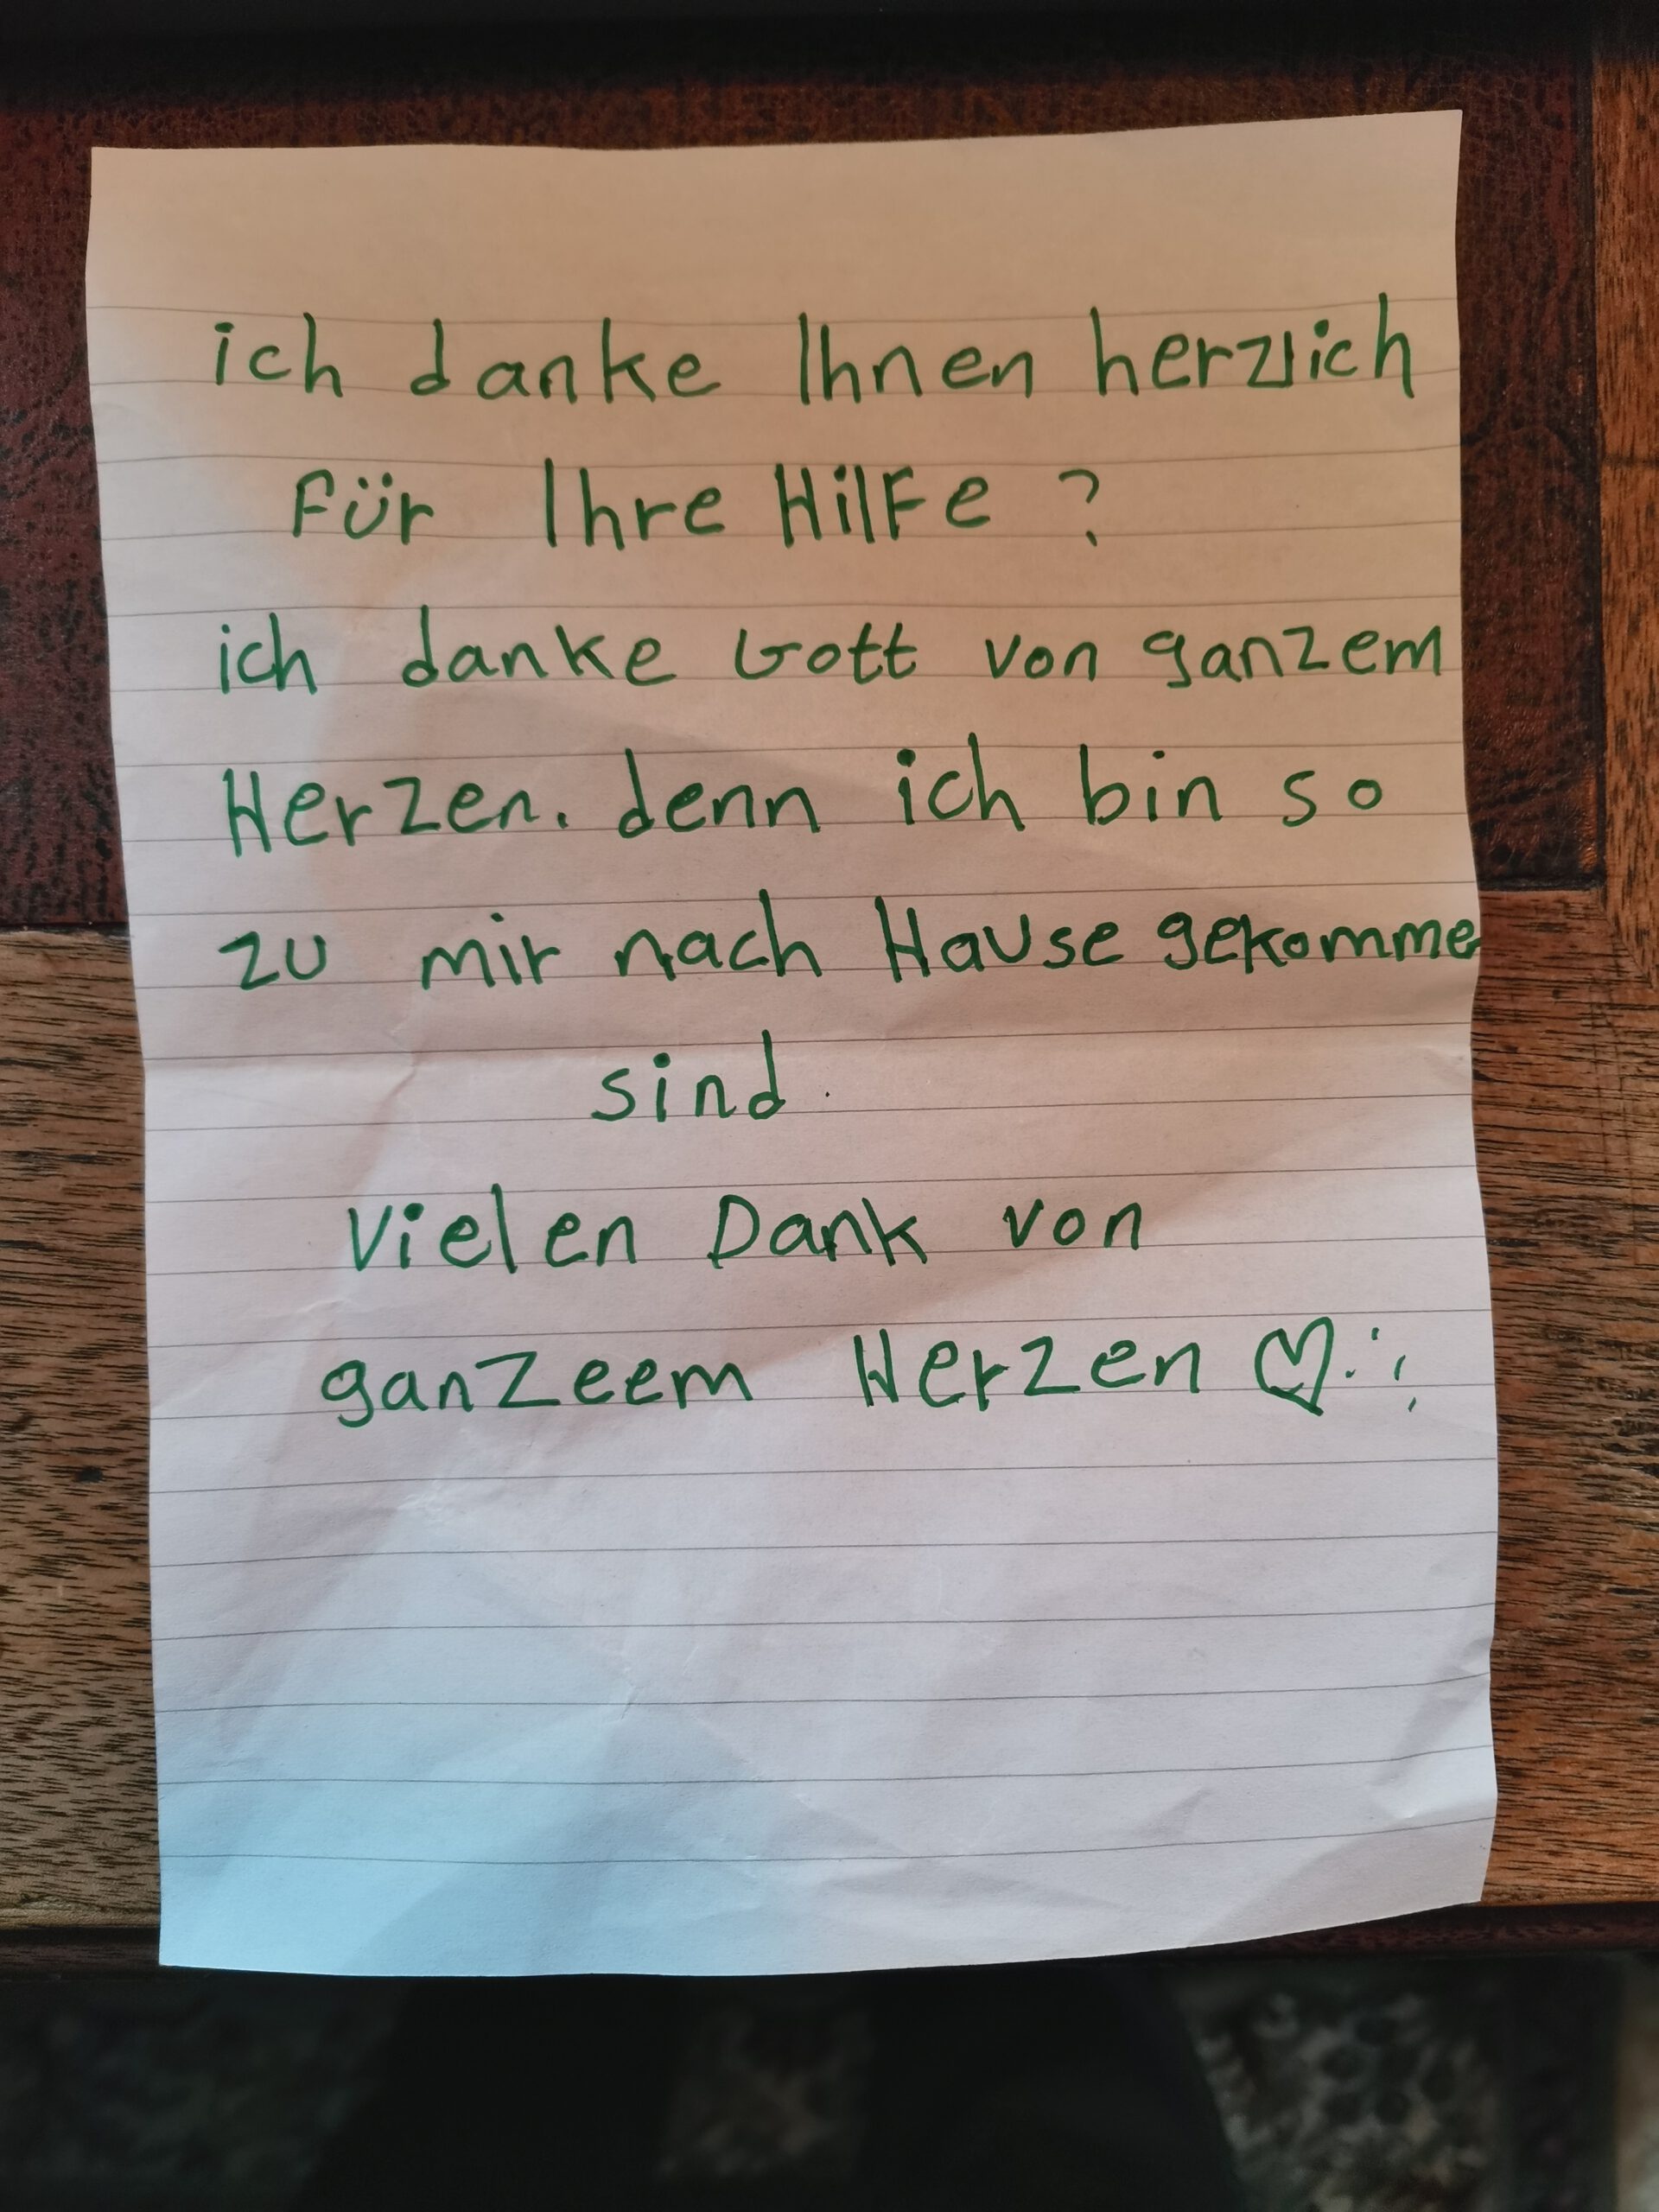 ich danke Ihnen herzlich
für Ihre Hilfe ?
ich danke Gott von ganzem
Herzen. denn ich bin so
zu mir nach Hause gekomme
sind.
Vielen Dank von
ganzeem Herzen ♡